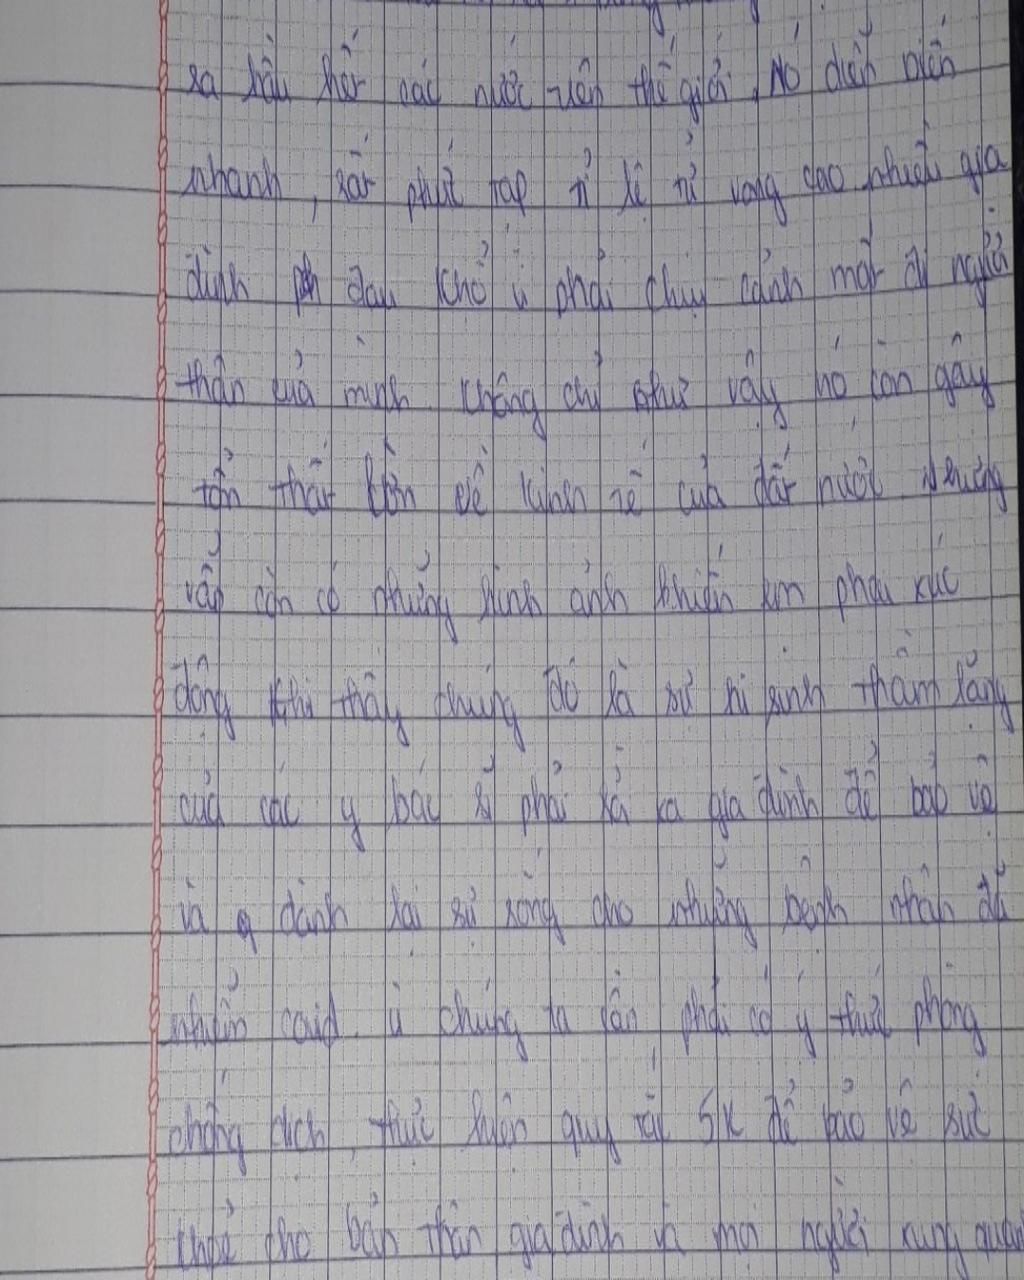 ra hầu hết các nước trên thế giới. Nó diễn biến
nhanh, rất phức tạp tỉ lệ tử vong cao nhiều gia
đình đau khổ vì phải chịu cảnh mất đi người
thân của mình. Không chỉ như vậy nó còn gây
tổn thất lớn về kinh tế của đất nước. Nhưng
vẫn còn có những hình ảnh khiến em phải xúc
động khi thấy chúng đó là sự hi sinh thầm lặng
của các y bác sĩ phải xả ra gia đình để bảo vệ
và dành lại sự sống cho những bệnh nhân đã
nhiễm covid. Vì chúng ta cần phải có ý thức phòng
chống dịch, thực luôn quy tắc 5K để bảo vệ sức
khoẻ cho bản thân gia đình và mọi người xung quanh